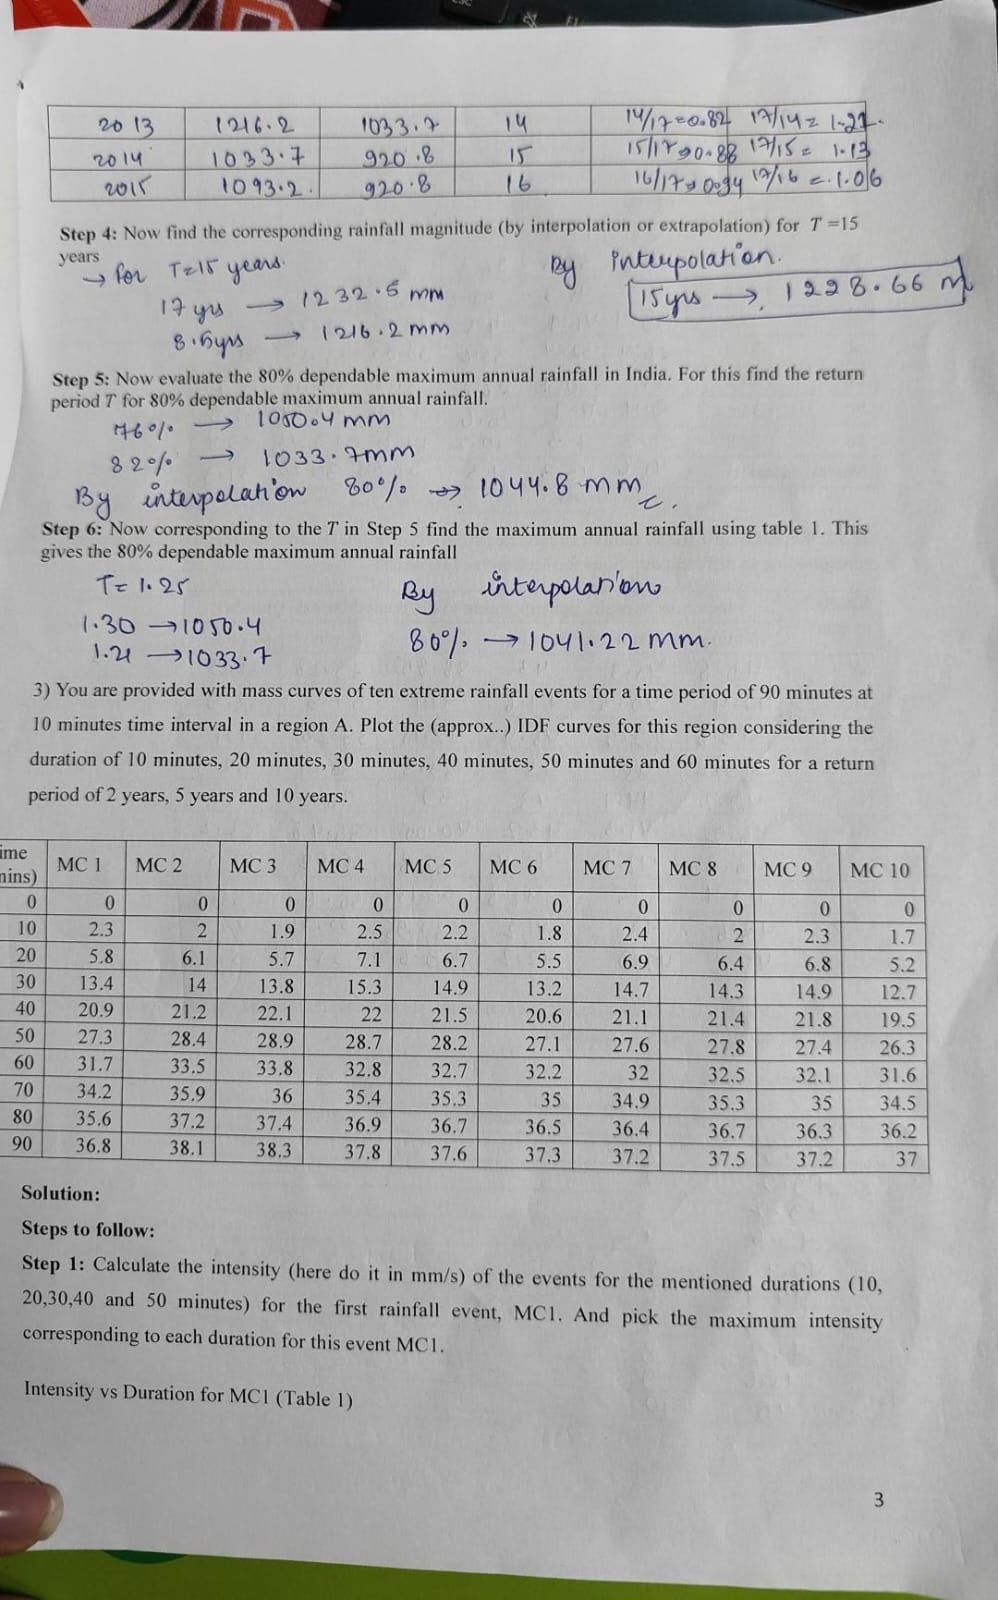 2013 1216.2 1033.7 14 14/17=0.82 17/14=1.21
2014 1033.7 920.8 15 15/17=0.88 17/15=1.13
2015 1093.2 920.8 16 16/17=0.94 17/16=1.06
Step 4: Now find the corresponding rainfall magnitude (by interpolation or extrapolation) for T =15
years
→ for T=15 years.
17 yrs → 1232.5 mm
8.5yrs → 1216.2 mm
By interpolation.
15yrs → 1228.66 m
Step 5: Now evaluate the 80% dependable maximum annual rainfall in India. For this find the return
period T for 80% dependable maximum annual rainfall.
76% → 1050.4 mm
82% → 1033.7mm
By interpolation 80% → 1044.8 mm
Step 6: Now corresponding to the T in Step 5 find the maximum annual rainfall using table 1. This
gives the 80% dependable maximum annual rainfall
T= 1.25
1.30 → 1050.4
1.21 → 1033.7
By interpolation
80% → 1041.22 mm.
3) You are provided with mass curves of ten extreme rainfall events for a time period of 90 minutes at
10 minutes time interval in a region A. Plot the (approx..) IDF curves for this region considering the
duration of 10 minutes, 20 minutes, 30 minutes, 40 minutes, 50 minutes and 60 minutes for a return
period of 2 years, 5 years and 10 years.
ime
nins) MC 1 MC 2 MC 3 MC 4 MC 5 MC 6 MC 7 MC 8 MC 9 MC 10
0 0 0 0 0 0 0 0 0 0 0
10 2.3 2 1.9 2.5 2.2 1.8 2.4 2 2.3 1.7
20 5.8 6.1 5.7 7.1 6.7 5.5 6.9 6.4 6.8 5.2
30 13.4 14 13.8 15.3 14.9 13.2 14.7 14.3 14.9 12.7
40 20.9 21.2 22.1 22 21.5 20.6 21.1 21.4 21.8 19.5
50 27.3 28.4 28.9 28.7 28.2 27.1 27.6 27.8 27.4 26.3
60 31.7 33.5 33.8 32.8 32.7 32.2 32 32.5 32.1 31.6
70 34.2 35.9 36 35.4 35.3 35 34.9 35.3 35 34.5
80 35.6 37.2 37.4 36.9 36.7 36.5 36.4 36.7 36.3 36.2
90 36.8 38.1 38.3 37.8 37.6 37.3 37.2 37.5 37.2 37
Solution:
Steps to follow:
Step 1: Calculate the intensity (here do it in mm/s) of the events for the mentioned durations (10,
20,30,40 and 50 minutes) for the first rainfall event, MC1. And pick the maximum intensity
corresponding to each duration for this event MC1.
Intensity vs Duration for MC1 (Table 1)
3